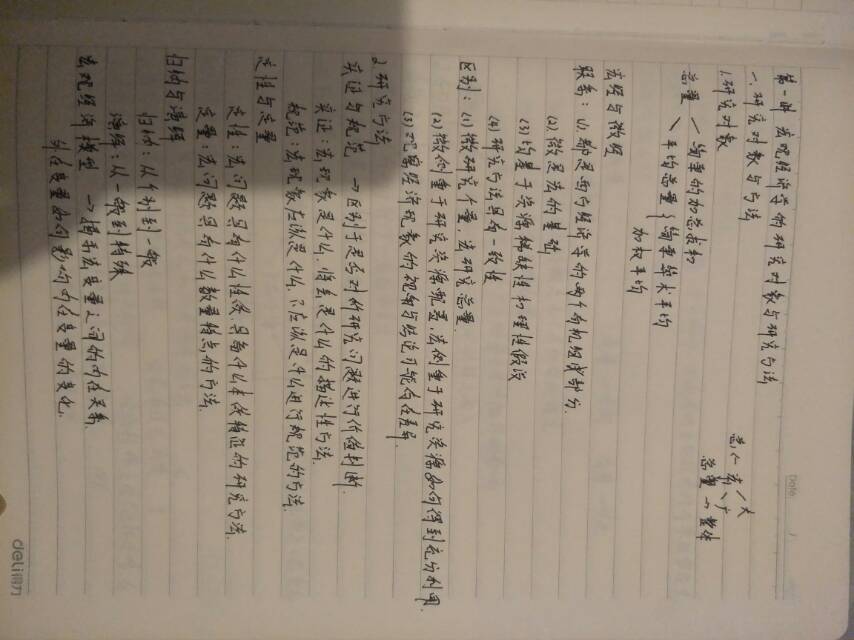 第一讲 宏观经济学的研究对象与研究方法
一. 研究对象与方法
1. 研究对象
宏 〈 宏 大、广
总量 → 整体
总量 ╱ 衡量的加总求和
╲ 平均总量 { 衡量算术平均
加权平均
宏经与微经
联系：(1). 都是西方经济学的两个有机组成部分.
(2). 微是宏的基础
(3) 均基于资源稀缺性和理性假设
(4) 研究方法具有一致性
区别：(1) 微研究个量, 宏研究总量.
(2) 微侧重于研究资源配置, 宏侧重于研究资源如何得到充分利用.
(3) 观察经济现象的视角与结论可能存在差异.
2. 研究方法
实证与规范 → 区别于是否对所研究问题进行价值判断.
实证：宏现象是什么. 将会是什么的描述性方法.
规范：宏现象应该是什么, 不应该是什么进行规范的方法.
定性与定量
定性：宏问题具有什么性质, 具有什么本质特征的研究方法.
定量：宏问题具有什么数量特点的方法.
归纳与演绎
归纳：从个别到一般
演绎：从一般到特殊
宏观经济模型 → 揭示宏变量之间的内在关系.
外在变量如何影响内在变量的变化.
Date
deli 得力